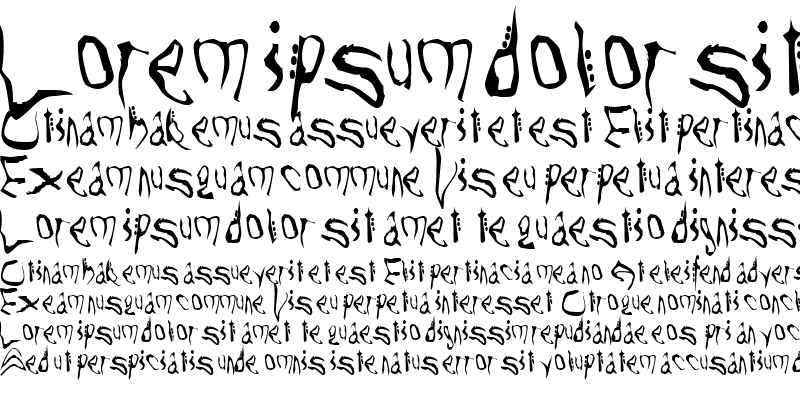 Lorem ipsum dolor sit
Utinam hak emus assueverit et est Elit pertinac
Ex eam nusquam commune Vis eu perpetua interes
Lorem ipsum dolor sit amet te quaestio digniss
Utinam hak emus assueverit et est Elit pertinacia mea no At eleifend advers
Ex eam nusquam commune Vis eu perpetua interesset Utroque nominati conc
Lorem ipsum dolor sit amet te quaestio dignissim repudiandae eos pri an voc
Sed ut perspiciatis unde omnis iste natus error sit voluptatem accusantium d